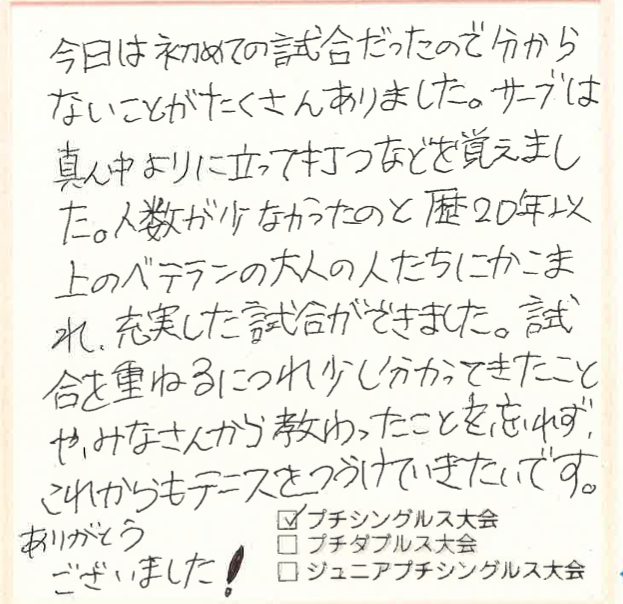 今日は初めての試合だったので分から
ないことがたくさんありました。サーブは
真ん中よりに立って打つなどを覚えまし
た。人数が少なかったのと歴20年以
上のベテランの大人の人たちにかこま
れ、充実した試合ができました。試
合を重ねるにつれ少し分かってきたこと
や、みなさんから教わったことを忘れず、
これからもテニスをつづけていきたいです。
ありがとう
ございました!
☑ プチシングルス大会
☐ プチダブルス大会
☐ ジュニアプチシングルス大会